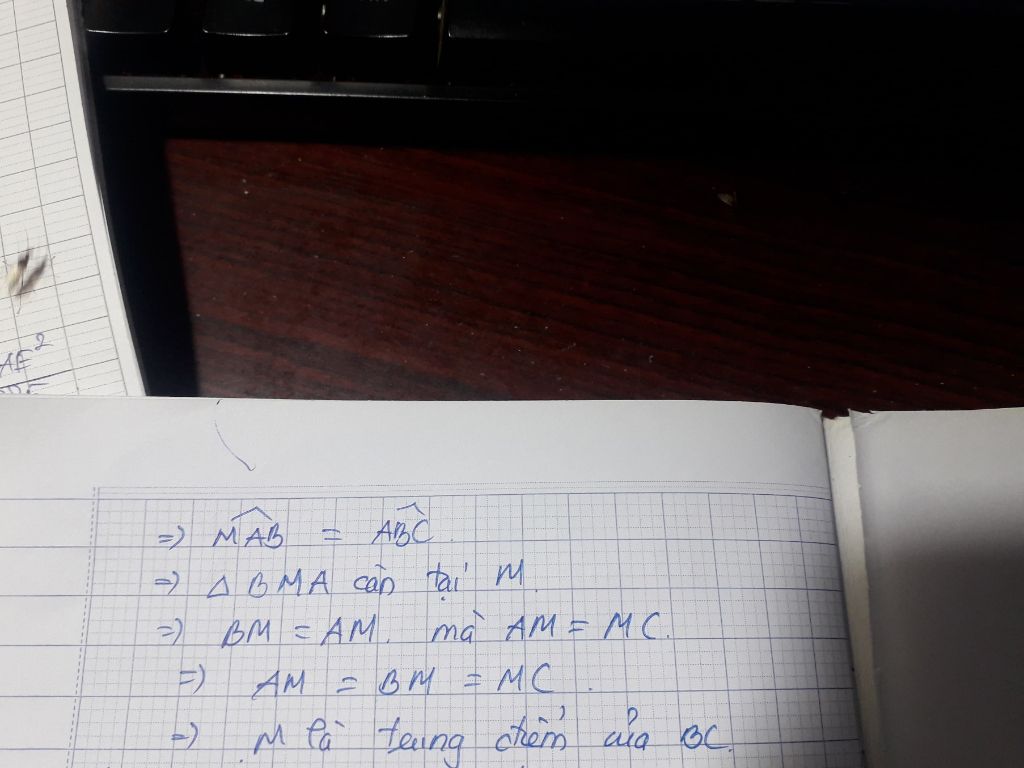 AE²
=) MAB^ = ABC^.
=) Δ BMA cân tại M.
=) BM = AM. mà AM = MC.
=) AM = BM = MC.
=) M là trung điểm của BC.